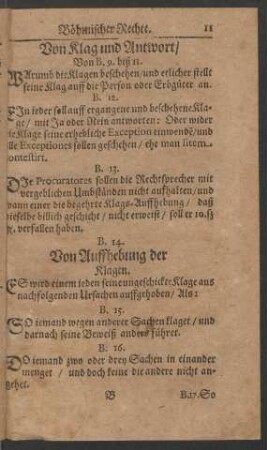 Böhmischer Rechte. 11
Von Klag und Antwort/
Von B. 9. biß 11.
WArumb die Klagen beschehen/ und etlicher stellt
seine Klag auff die Person oder Erbgüter an.
B. 12.
EIn jeder soll auff ergangene und beschehene Kla-
ge/ mit Ja oder Nein antworten: Oder wider
die Klage seine erhebliche Exception einwende/ und
lle Exceptiones sollen geschehen/ ehe man litem
ontestirt.
B. 13.
DIe Procuratores sollen die Rechtsprecher mit
vergeblichen Umbständen nicht auffhalten/ und
wann einer die begehrte Klags-Auffhebung/ daß
dieselbe billich geschicht/ nicht erweist/ soll er 10. ß
verfallen haben.
B. 14.
Von Auffhebung der
Klagen.
ES wird einem jeden seine ungeschickte Klage aus
nachfolgenden Ursachen auffgehoben/ Als:
B. 15.
SO jemand wegen anderer Sachen klaget/ und
darnach seine Beweiß anders führet.
B. 16.
SO jemand zwo oder drey Sachen in einander
menget/ und doch keine die andere nicht an-
gehet.
B B. 17. So